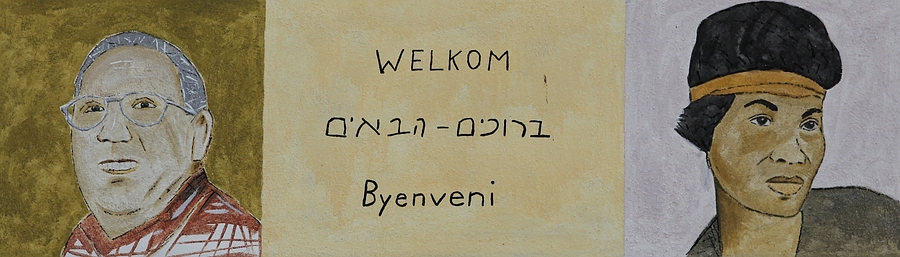 WELKOM
ברוכים-הבאים
Byenveni